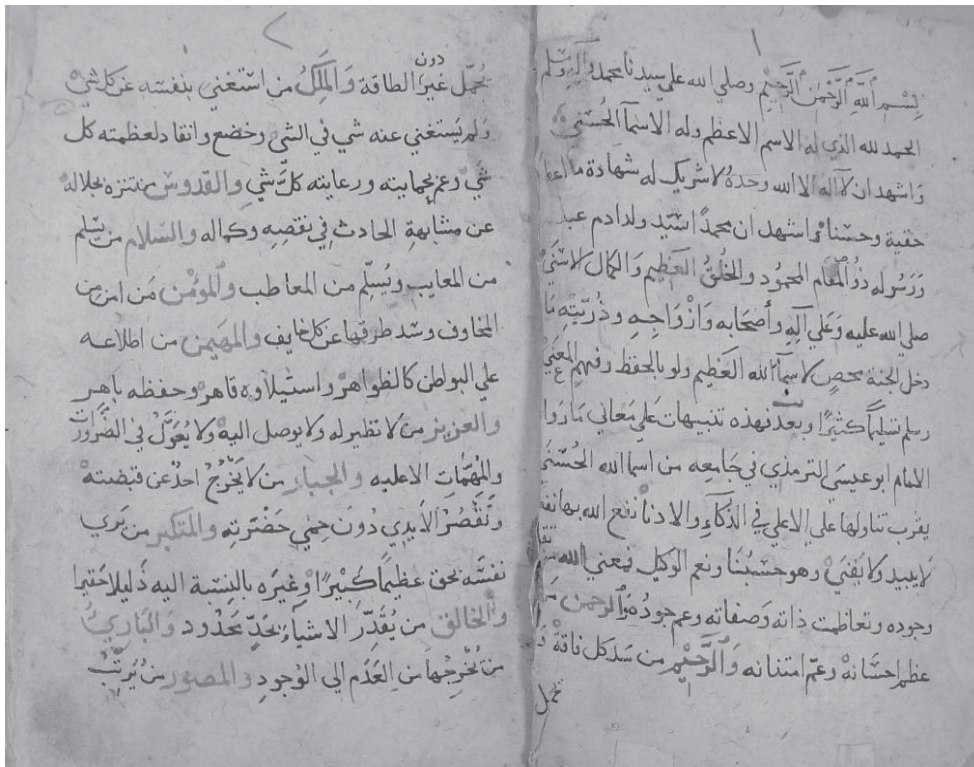 ١
بِسْمِ ٱللَّهِ ٱلرَّحْمٰنِ ٱلرَّحِيْمِ وصلي الله علي سيدنا محمد وآله وسلم
الحمد لله الذي له الاسم الاعظم وله الاسمآ الحُسْنَي
وَاشهد ان لا آله الا الله وحدهُ لا شريك له شهادة ما
حقية وحسنا واشهد ان محمدًا سَيّد ولد ادم عبد
وَرَسُوله ذُو المَقام المحمُود والخُلُقُ العَظِيم وَالكمال الاسْنَي
صلي الله عليه وَعَلي آلِهِ وأصحَابه وَازْوَاجِهِ وذُرِّيَتِهِ مَا
دخل الجنة محصٍ لاسمآءِ الله العَظِيم ولو بالحفظ وفهم المعَنَي
وسلم تسليمًا كثيرًا وبعد فهذه تنبيهات عَلي مَعَاني مَا رَوَا
الامام ابو عيسَي الترمذي في جَامِعه من اسما الله الحُسْنَي
يقرب تناولها علي الاعلي في الذكآءِ والادنا نفع الله بها نفعا
لا يبيد ولا يَفْنَي وهو حسْبُنَا ونعم الوكيل فمعني الله من
وجوده وتعاظمت ذاته وَصفاته وعم جودُهُ وَالرحمن من
عظم احسَانه وعَمّ امتنانه وَالرَّحِيْم من سَد كل فاقة وَ
يحمل
٢
يُحَمِّل غير دون الطاقة وَالمَلِكُ من استغني بنفسه عن كل شيْ
ولم يَستغني عنه شي في الشي وخضع وانقاد لعظمته كل
شي وعم بحمايته ورعايته كلَّ شي وَالقدوس من تنزه بجلاله
عن مشابهةِ الحادث في نقصِهِ وكماله والسَّلام من يَسْلم
من المعايب ويُسَلِّم من المعاطب وَالموْمن مَن امن من
المخاوف وسَد طرقها عن كل خايف وَالمهَيمن من اطلاعه
علي البواطن كالظواهر واستيلاوه قاهر وحفظه باهر
والعزيز من لا نظير له ولا يوصل اليهْ ولا يُعَوَّل في الضَرُورَات
والمُهِمّاتِ الا عليه وَالجبار من لا يَخْرُجُ احدٌ عن قبضتهْ
وتَقْصُرُ الأيدِي دُونَ حِمَي حَضْرَتِهِ وَالمتكبر من يَري
نفسَه بحق عظيمًا كبيْرًا وغيرَه بالنِسْبة اليه ذليلا حقيرا
وَالخَالق من يُقَدِّرُ الاشياءَ بحَدٍّ مَحْدُود وَالبَارِيُ
من يُخْرِجُها من العَدَم الي الوُجودِ والمصَور من يُرَتِّبُ